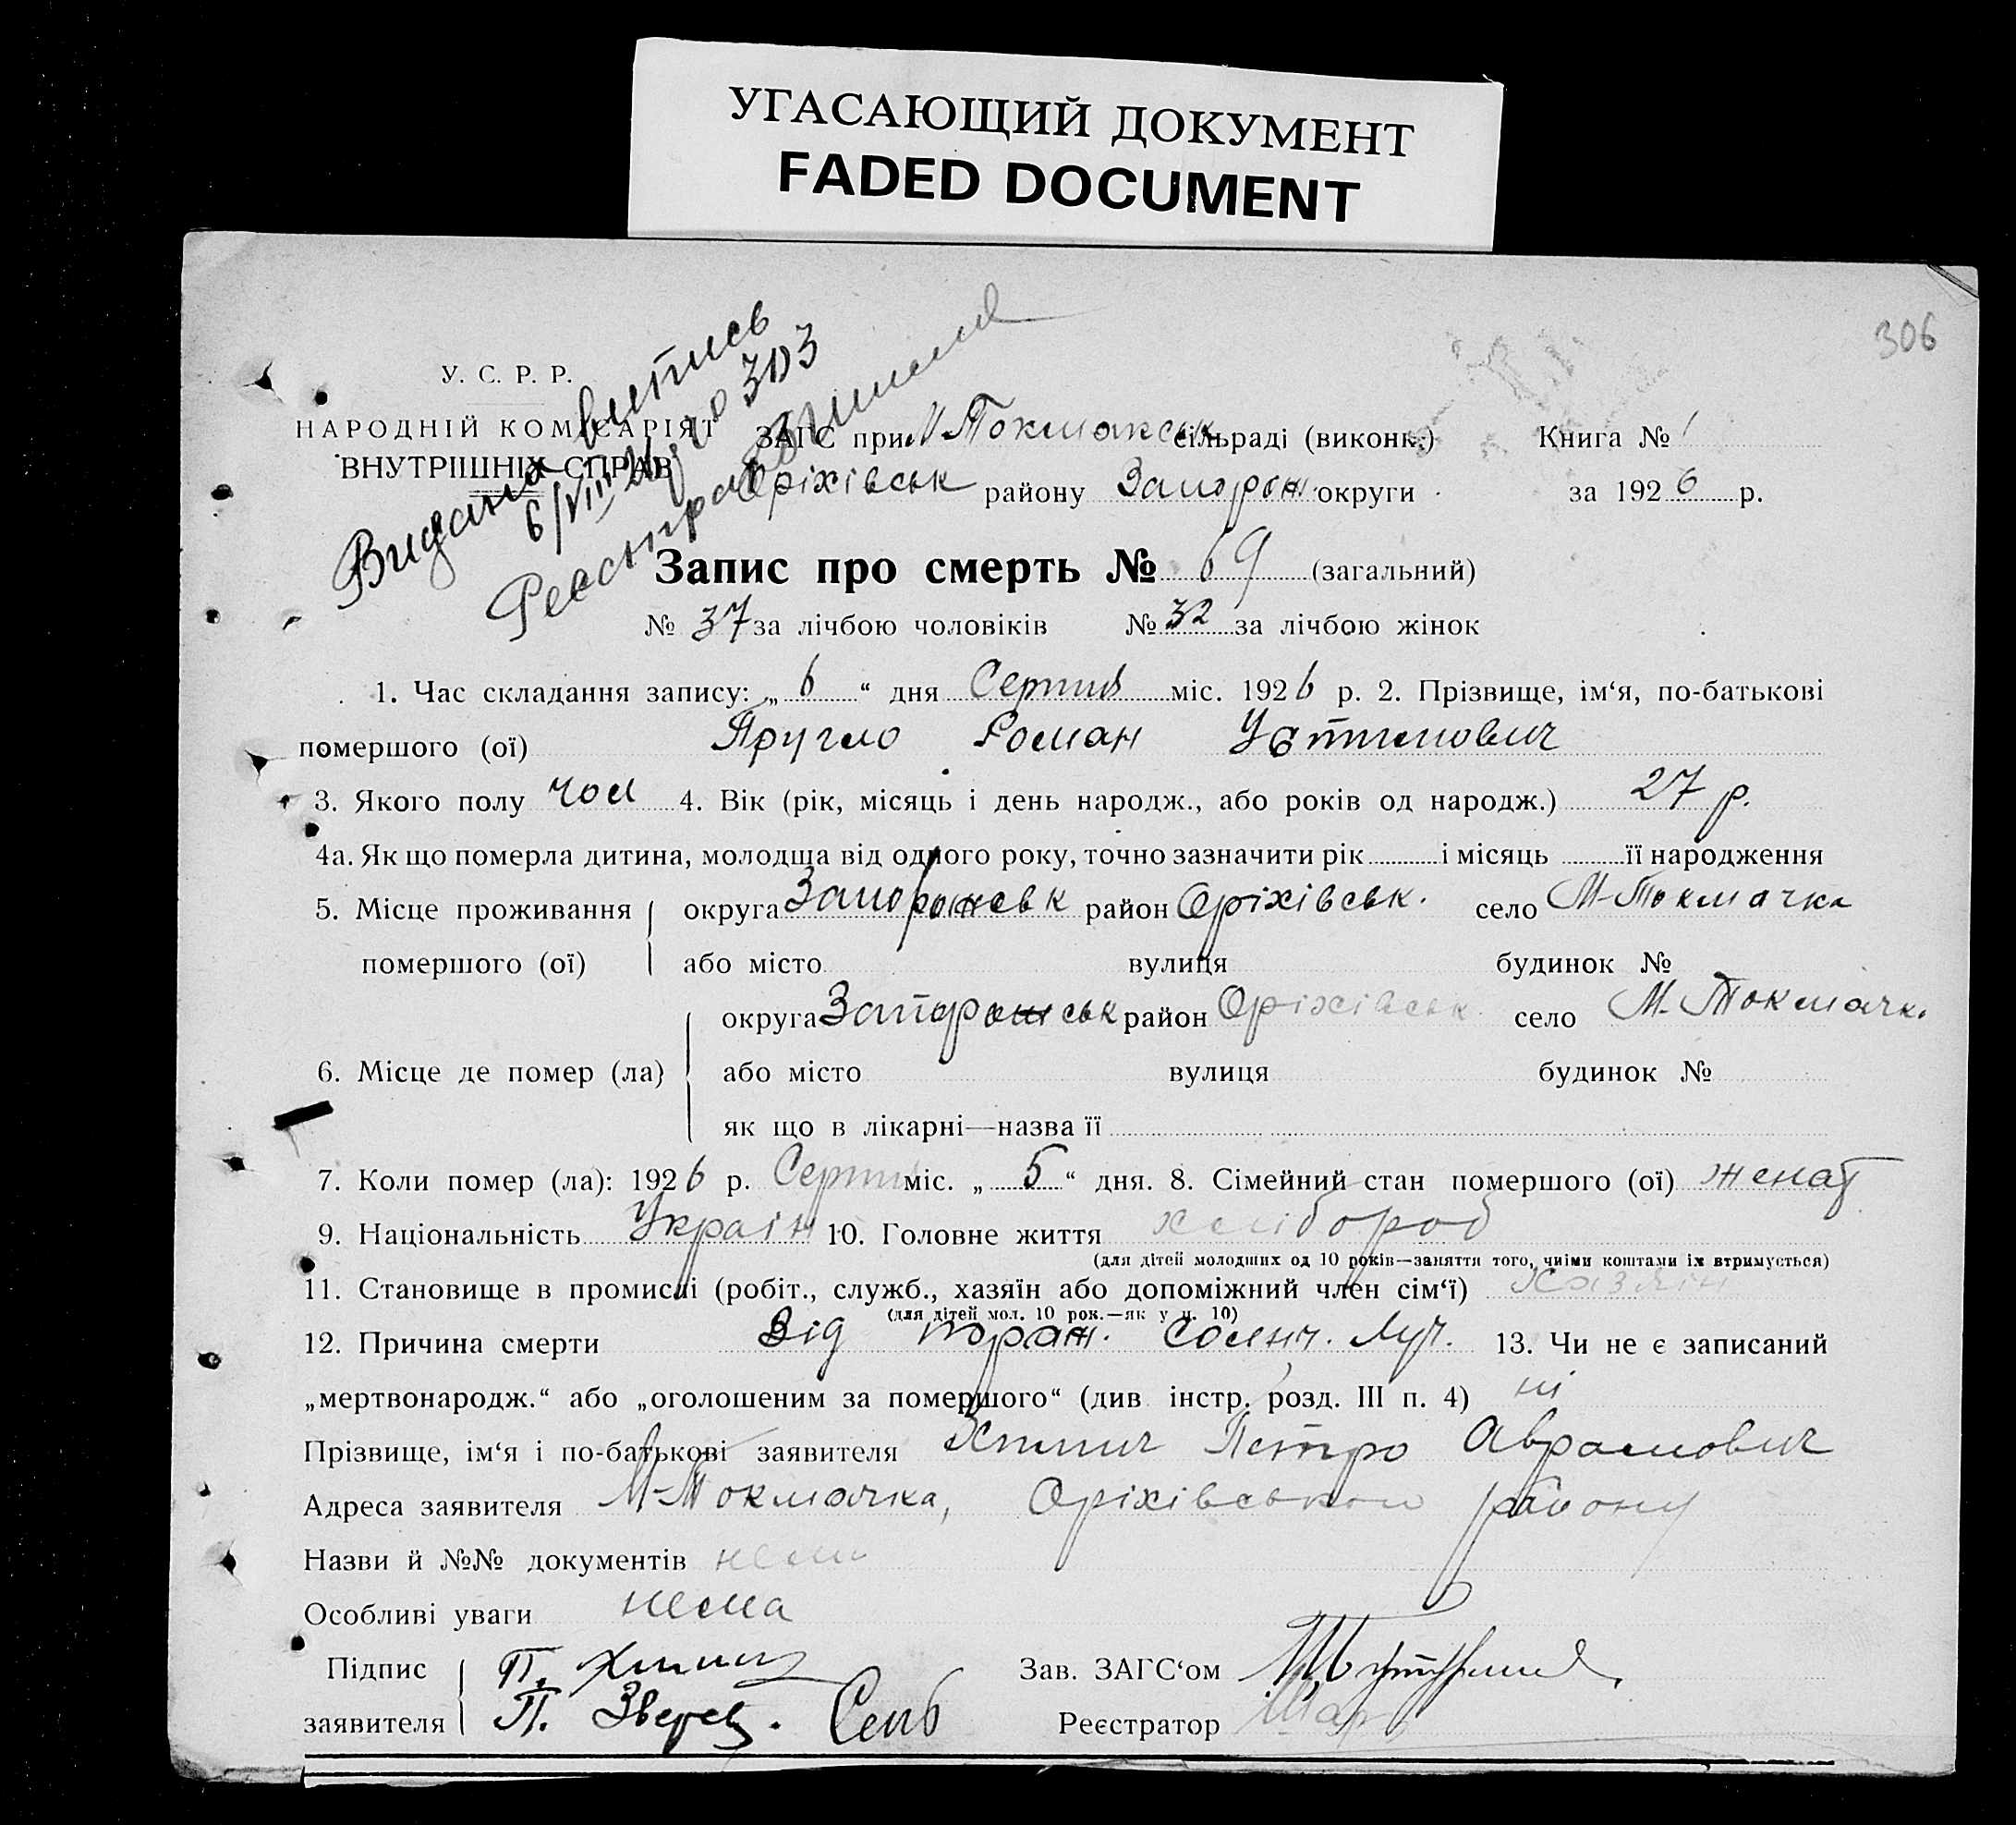 УГАСАЮЩИЙ ДОКУМЕНТ
FADED DOCUMENT
306
Видана випись
6/VIII 26 р. No 303
У. С. Р. Р.
НАРОДНІЙ КОМІСАРІЯТ
ВНУТРІШНІХ СПРАВ
ЗАГС при М-Токмакськ сільраді (виконк.) Книга № 1
Оріхівськ району Запорож. округи за 1926 р.
Запис про смерть № 69 (загальний)
№ 37 за лічбою чоловіків № 32 за лічбою жінок
1. Час складання запису: „ 6 “ дня Серпня міс. 1926 р. 2. Прізвище, ім‘я, по-батькові
помершого (ої) Пругло Роман Устимович
3. Якого полу чол 4. Вік (рік, місяць і день народж., або років од народж.) 27 р.
4а. Як що померла дитина, молодша від одного року, точно зазначити рік і місяць її народження
5. Місце проживання округа Запорожськ район Оріхівськ. село М-Токмачка
помершого (ої) або місто вулиця будинок №
округа Запорожськ район Оріхівськ село М-Токмачк.
6. Місце де помер (ла) або місто вулиця будинок №
як що в лікарні—назва її
7. Коли помер (ла): 1926 р. Серпня міс. „ 5 “ дня. 8. Сімейний стан помершого (ої) женат
9. Національність Україн 10. Головне життя хлібороб
(для дітей молодших од 10 років—заняття того, чиїми коштами їх втримується)
11. Становище в промислі (робіт., служб., хазяїн або допоміжний член сім‘ї) хазяїн
(для дітей мол. 10 рок.—як у п. 10)
12. Причина смерти Від пораж. Солнч. Луч. 13. Чи не є записаний
„мертвонародж.“ або „оголошеним за помершого“ (див інстр. розд. III п. 4) ні
Прізвище, ім‘я і по-батькові заявителя Петро Аврамович
Адреса заявителя М-Токмачка, Оріхівського району
Назви й №№ документів нема
Особливі уваги нема
Підпис П. Зав. ЗАГС‘ом
заявителя П. Зверев. Реєстратор